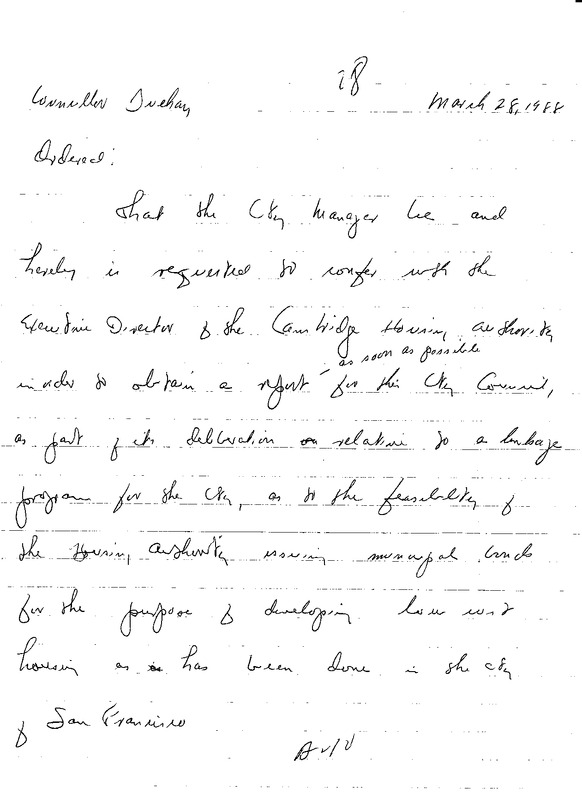 28
Councillor Duehay March 28, 1988
Ordered:
That the City Manager be and
hereby is requested to confer with the
Executive Director of the Cambridge Housing Authority
as soon as possible
in order to obtain a report for this City Council,
as part of its deliberation on relative to a linkage
program for the City, as to the feasibility of
the Housing Authority issuing municipal bonds
for the purpose of developing low cost
housing as is has been done in the city
of San Francisco